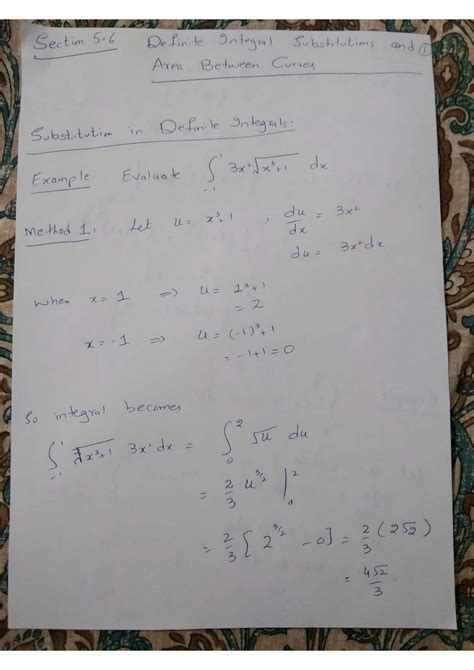 Section 5.6 Definite Integral Substitutions and ①
Area Between Curves
Substitution in Definite Integrals:
Example: Evaluate ∫₋₁¹ 3x²√(x³+1) dx
Method 1: Let u = x³+1 , du/dx = 3x²
du = 3x²dx
When x = 1 ⇒ u = 1³+1
= 2
x = -1 ⇒ u = (-1)³+1
= -1+1 = 0
So integral becomes
∫₋₁¹ √(x³+1) 3x²dx = ∫₀² √u du
= 2/3 u^(3/2) |₀²
= 2/3 [2^(3/2) - 0] = 2/3 (2√2)
= 4√2/3.